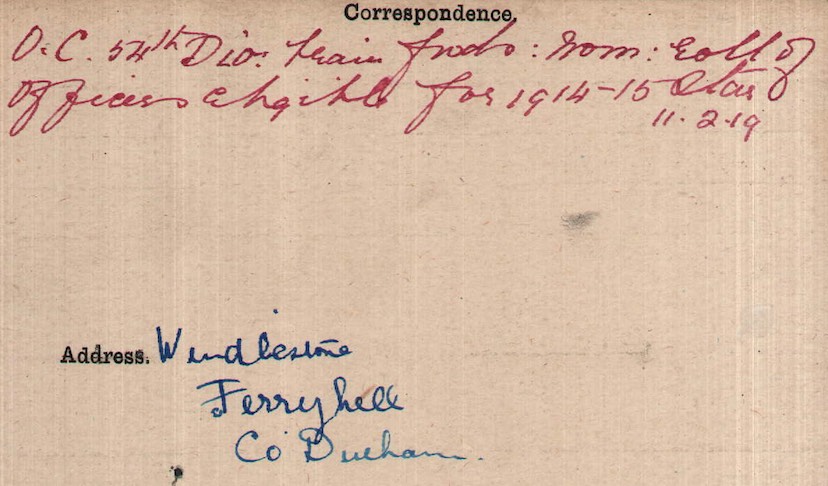 Correspondence.
O.C. 54th Div. Train fwds: Nom: Roll of
Officers eligible for 1914-15 Star
11.2.19
Address. Windlestone
Ferryhill
Co Durham.